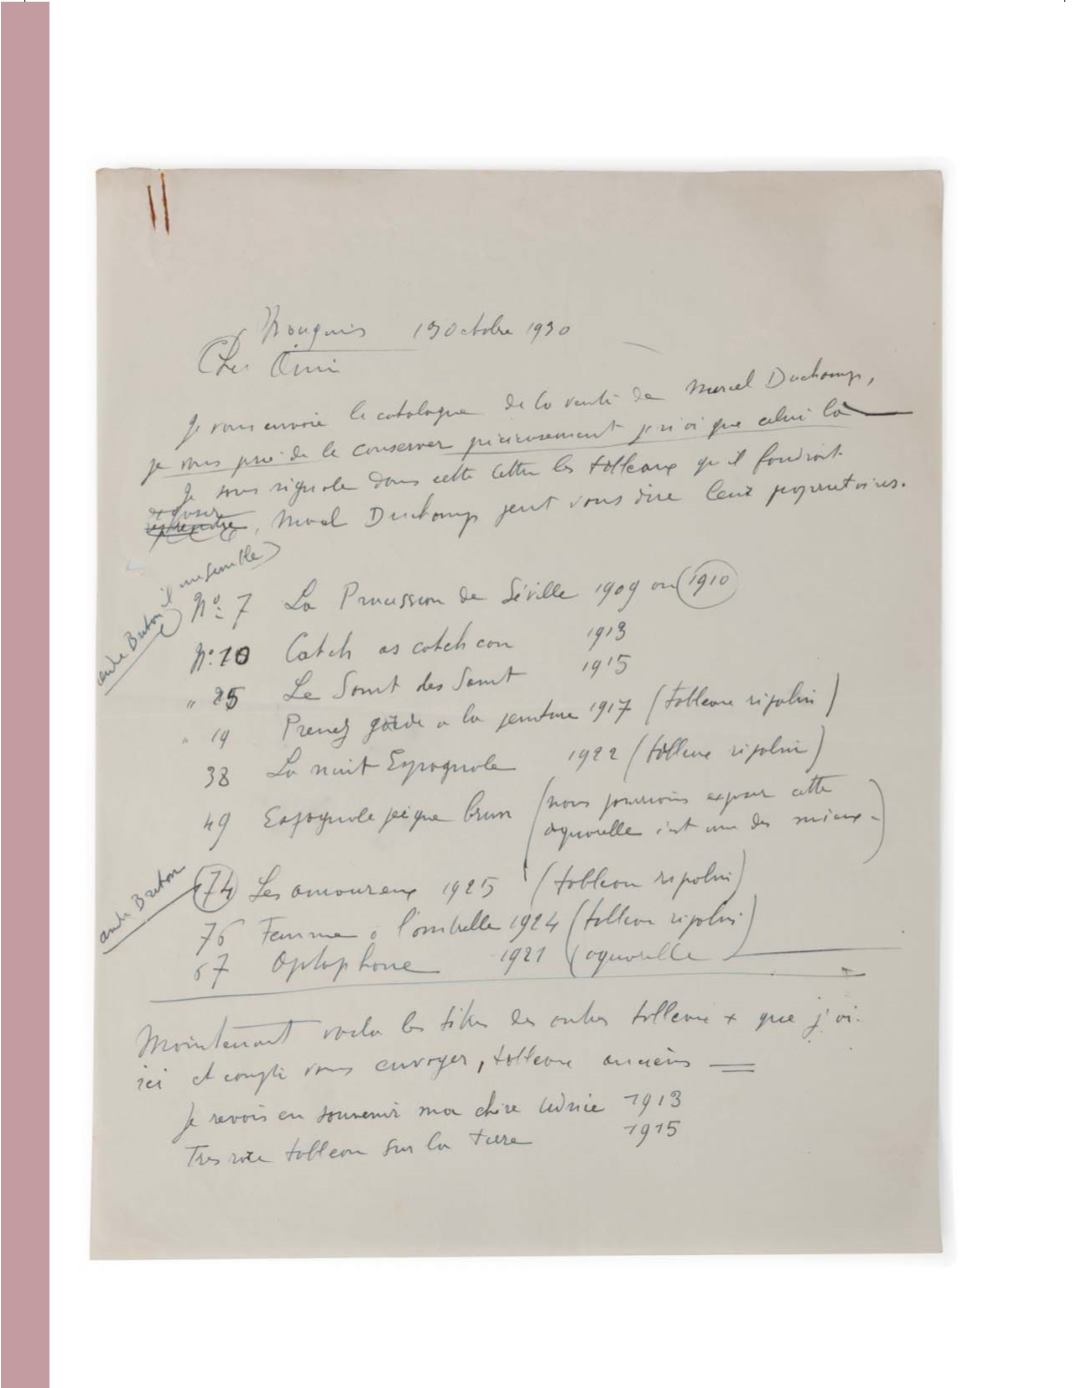 Mougins 13 Octobre 1930
Cher Ami
Je vous envoie le catalogue de la vente de Marcel Duchamp,
je vous prie de le conserver précieusement je n'ai que celui là
Je vous signale dans cette lettre les tableaux qu'il faudrait
exposer
, Marcel Duchamp peut vous dire leur propriétaires.
andré Breton il me semble)
No: 7 La Procession de Séville 1909 ou 1910
No: 10 Catch as catch can 1913
" 25 Le Saint des Saint 1915
" 19 Prenez garde a la peinture 1917 (tableau ripolin)
38 La nuit Espagnole 1922 (tableau ripolin)
49 Espagnole peigne brun (nous pourrions exposer cette
aquarelle c'est une des mieux-)
andré Breton
74 Les amoureux 1925 (tableau ripolin)
76 Femme a l'ombrelle 1924 (tableau ripolin)
67 Optophone 1921 (aquarelle
Maintenant voila les titres des autres tableaux + que j'ai
ici et compte vous envoyer, tableaux anciens =
Je revois en souvenir ma chère Udnie 1913
Tres rare tableau sur la terre 1915